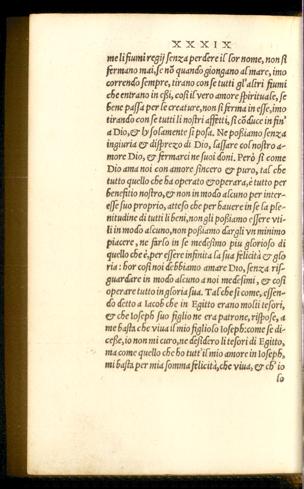 XXXIX
me li fiumi regij senza perdere il lor nome, non si
fermano mai, se nõ quando giongano al mare, imo
correndo sempre, tirano con se tutti gl'altri fiumi
che entrano in eßi, cosi il vero amore spirituale, se
bene passa per le creature, non si ferma in esse, imo
tirando con se tutti li nostri affetti, si cõduce in fin'
a Dio, & lì solamente si posa. Ne poßiamo senza
ingiuria & disprezo di Dio, lassare col nostro a-
more Dio, & fermarci ne suoi doni. Però si come
Dio ama noi con amore sincero & puro, tal che
tutto quello che ha operato & operara, è tutto per
benefitio nostro, & non in modo alcuno per inter-
esse suo proprio, atteso che per hauere in se la ple-
nitudine di tutti li beni, non gli poßiamo essere vti-
li in modo alcuno, non poßiamo dargli vn minimo
piacere, ne farlo in se medesimo piu glorioso di
quello che è, per essere infinita la sua felicità & glo-
ria: hor cosi noi debbiamo amare Dio, senza ris-
guardare in modo alcuno a noi medesimi, & cosi
operare tutto in gloria sua. Tal che si come, essen-
do detto a Iacob che in Egitto erano molti tesori,
& che Ioseph suo figlio ne era patrone, rispose, a
me basta che viua il mio figliolo Ioseph: come se di-
ceße, io non mi curo, ne desidero li tesori di Egitto,
ma come quello che ho tutt'il mio amore in Ioseph,
mi basta per mia somma felicità, che viua, & ch'io
lo